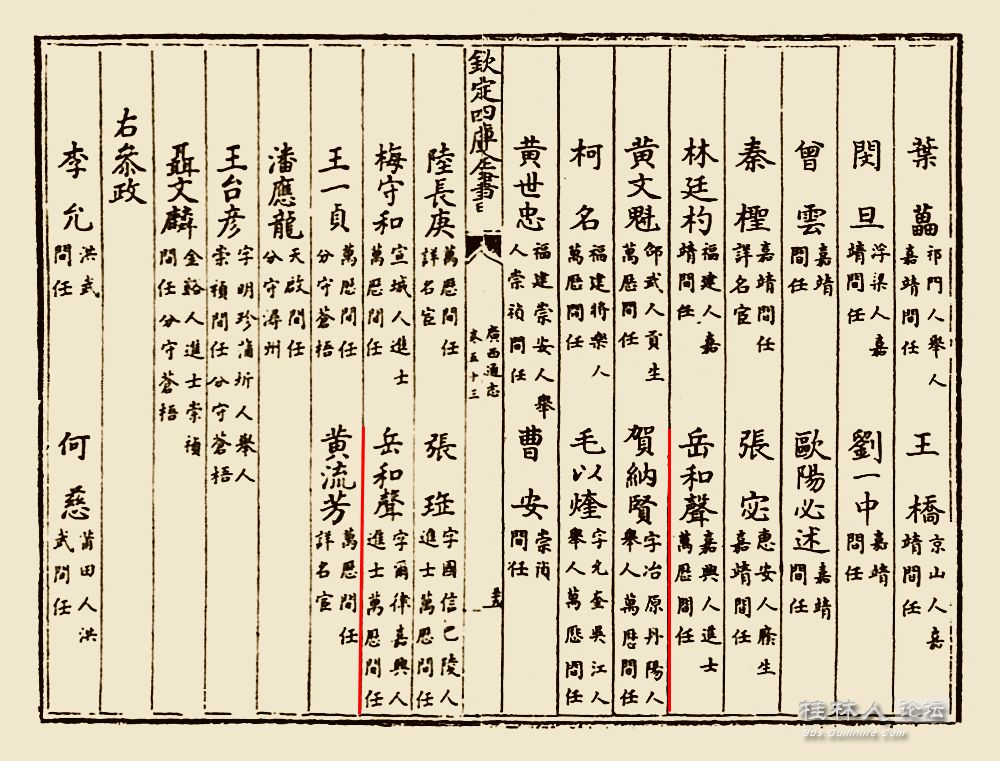 葉 祁門人舉人嘉靖間任 王橋 京山人嘉靖間任
閔旦 浮梁人嘉靖間任 劉一中 嘉靖間任
曾雲 嘉靖間任 歐陽必述 嘉靖間任
秦檉 嘉靖間任詳名宦 張宓 惠安人廕生嘉靖間任
林廷杓 福建人嘉靖間任 岳和聲 嘉興人進士萬厯間任
黄文魁 邵武人貢生萬厯間任 賀納賢 字冶原丹陽人舉人萬厯間任
柯名 福建將樂人萬厯間任 毛以煃 字允奎吳江人舉人萬厯間任
黄世忠 福建崇安人舉人崇禎間任 曹安 崇禎間任
欽定四庫全書
廣西通志
卷五十三
陸長庚 萬厯間任詳名宦 張 字國信巴陵人進士萬厯間任
梅守和 宣城人進士萬厯間任 岳和聲 字爾律嘉興人進士萬厯間任
王一貞 萬厯間任分守蒼梧 黄流芳 萬厯間任詳名宦
潘應龍 天啟間任分守潯州
王台彦 字明珍蒲圻人舉人崇禎間任分守蒼梧
聶文麟 金谿人進士崇禎間任分守蒼梧
右叅政
李允 洪武間任 何慈 莆田人洪武間任
桂林人 论坛
bbs.Guilinlife.com